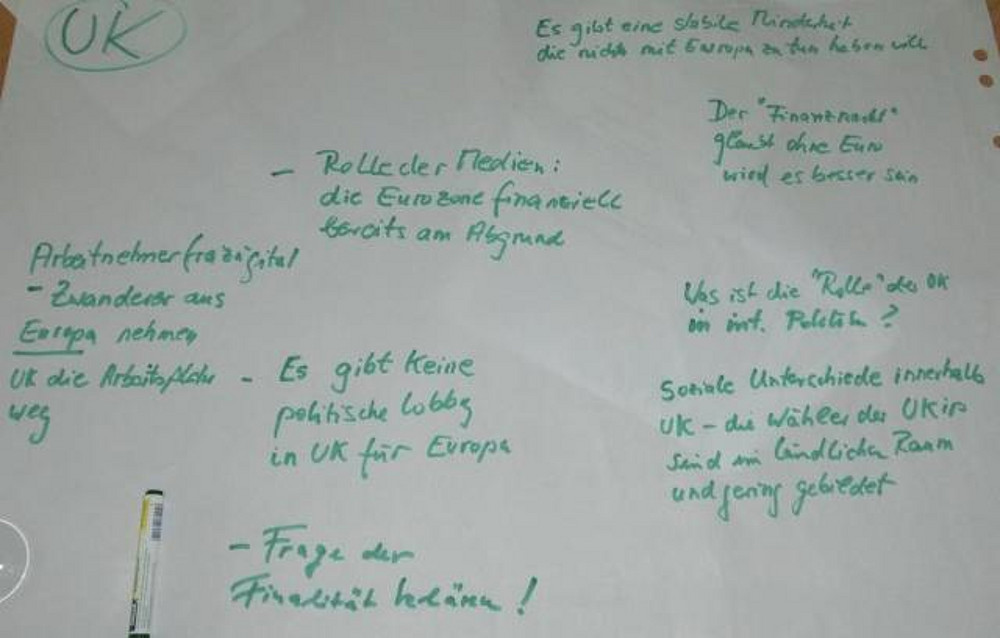 UK
Es gibt eine stabile Minderheit
die nichts mit Europa zu tun haben will
Der "Finanzmarkt"
glaubt ohne Euro
wird es besser sein
- Rolle der Medien:
die Eurozone finanziell
bereits am Abgrund
Arbeitnehmerfreizügigkeit
- Zuwanderer aus
Europa nehmen
UK die Arbeitsplätze
weg
Was ist die "Rolle" des UK
in int. Politik?
- Es gibt keine
politische Lobby
in UK für Europa
Soziale Unterschiede innerhalb
UK - die Wähler der UKIP
sind im ländlichen Raum
und gering gebildet
- Frage der
Finalität klären!